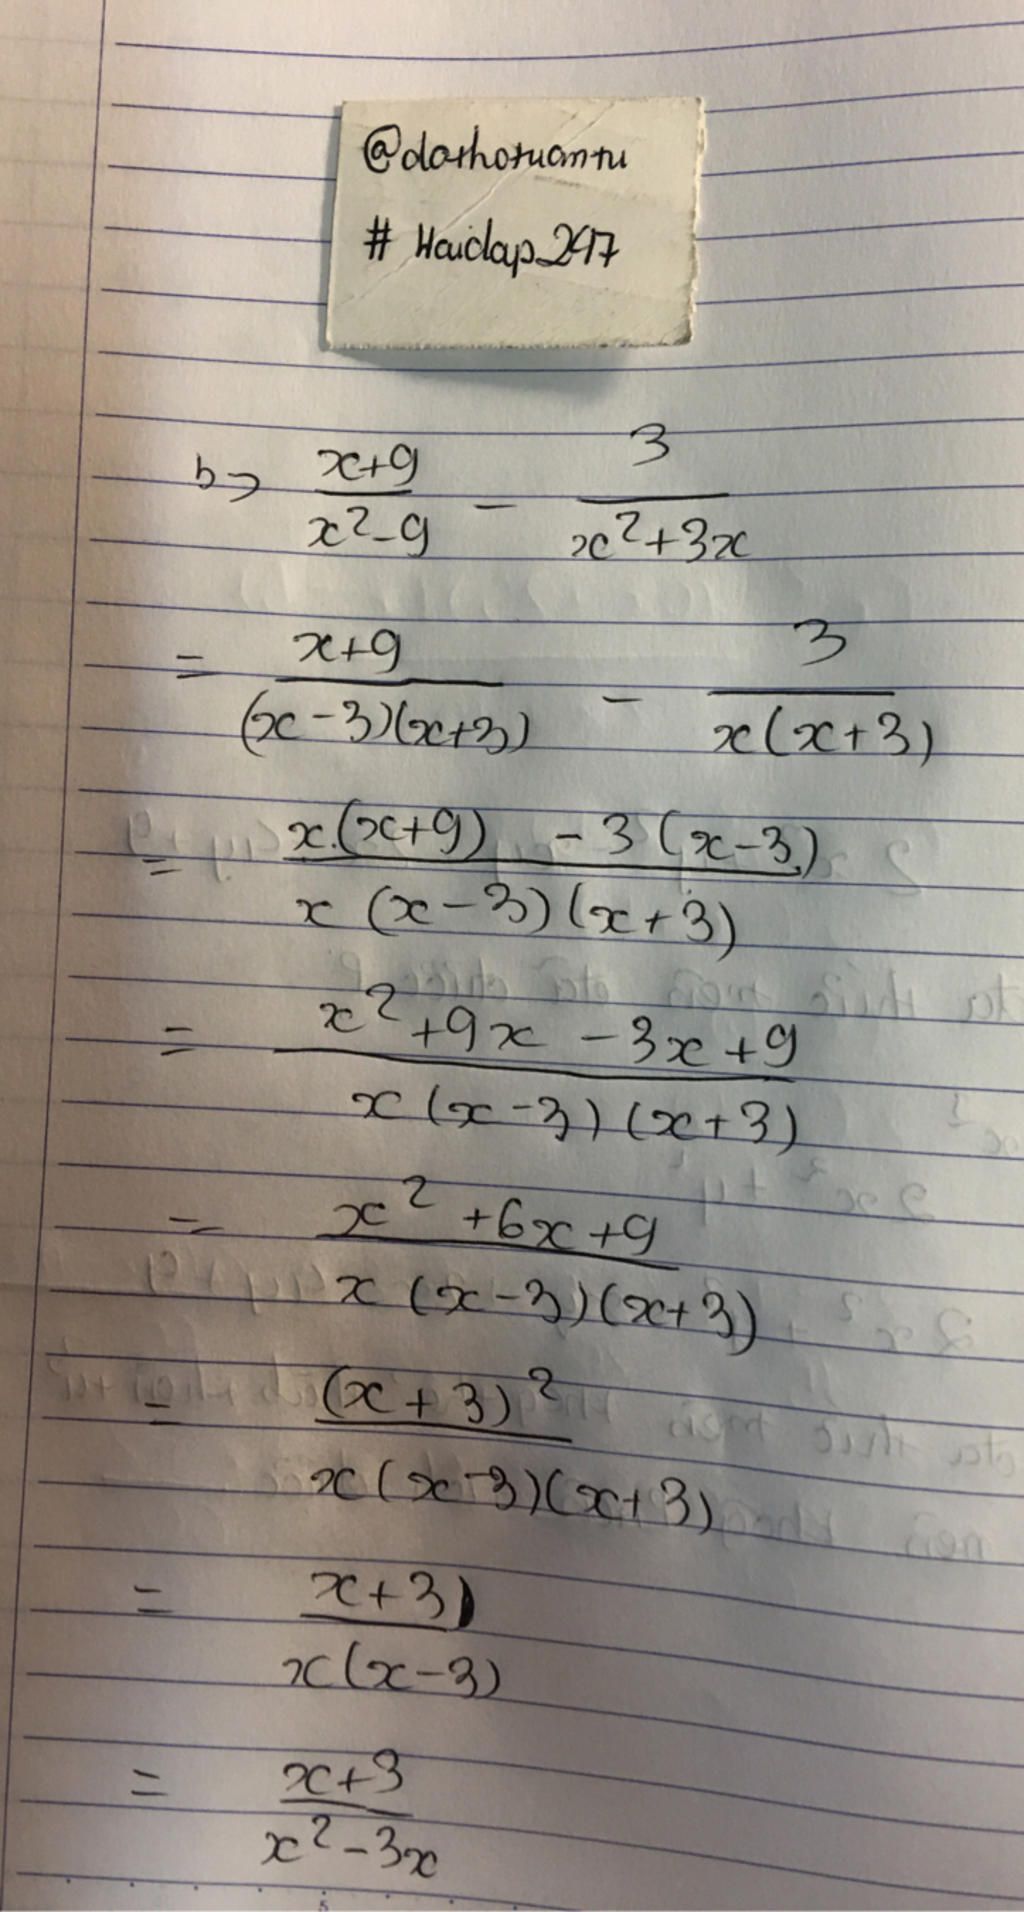 @dothotuantu
# Hoidap_247
b> x+9 / x²-9 - 3 / x²+3x
= x+9 / (x-3)(x+3) - 3 / x(x+3)
= x.(x+9) - 3(x-3) / x(x-3)(x+3)
= x²+9x-3x+9 / x(x-3)(x+3)
= x²+6x+9 / x(x-3)(x+3)
= (x+3)² / x(x-3)(x+3)
= x+3 / x(x-3)
= x+3 / x²-3x
5